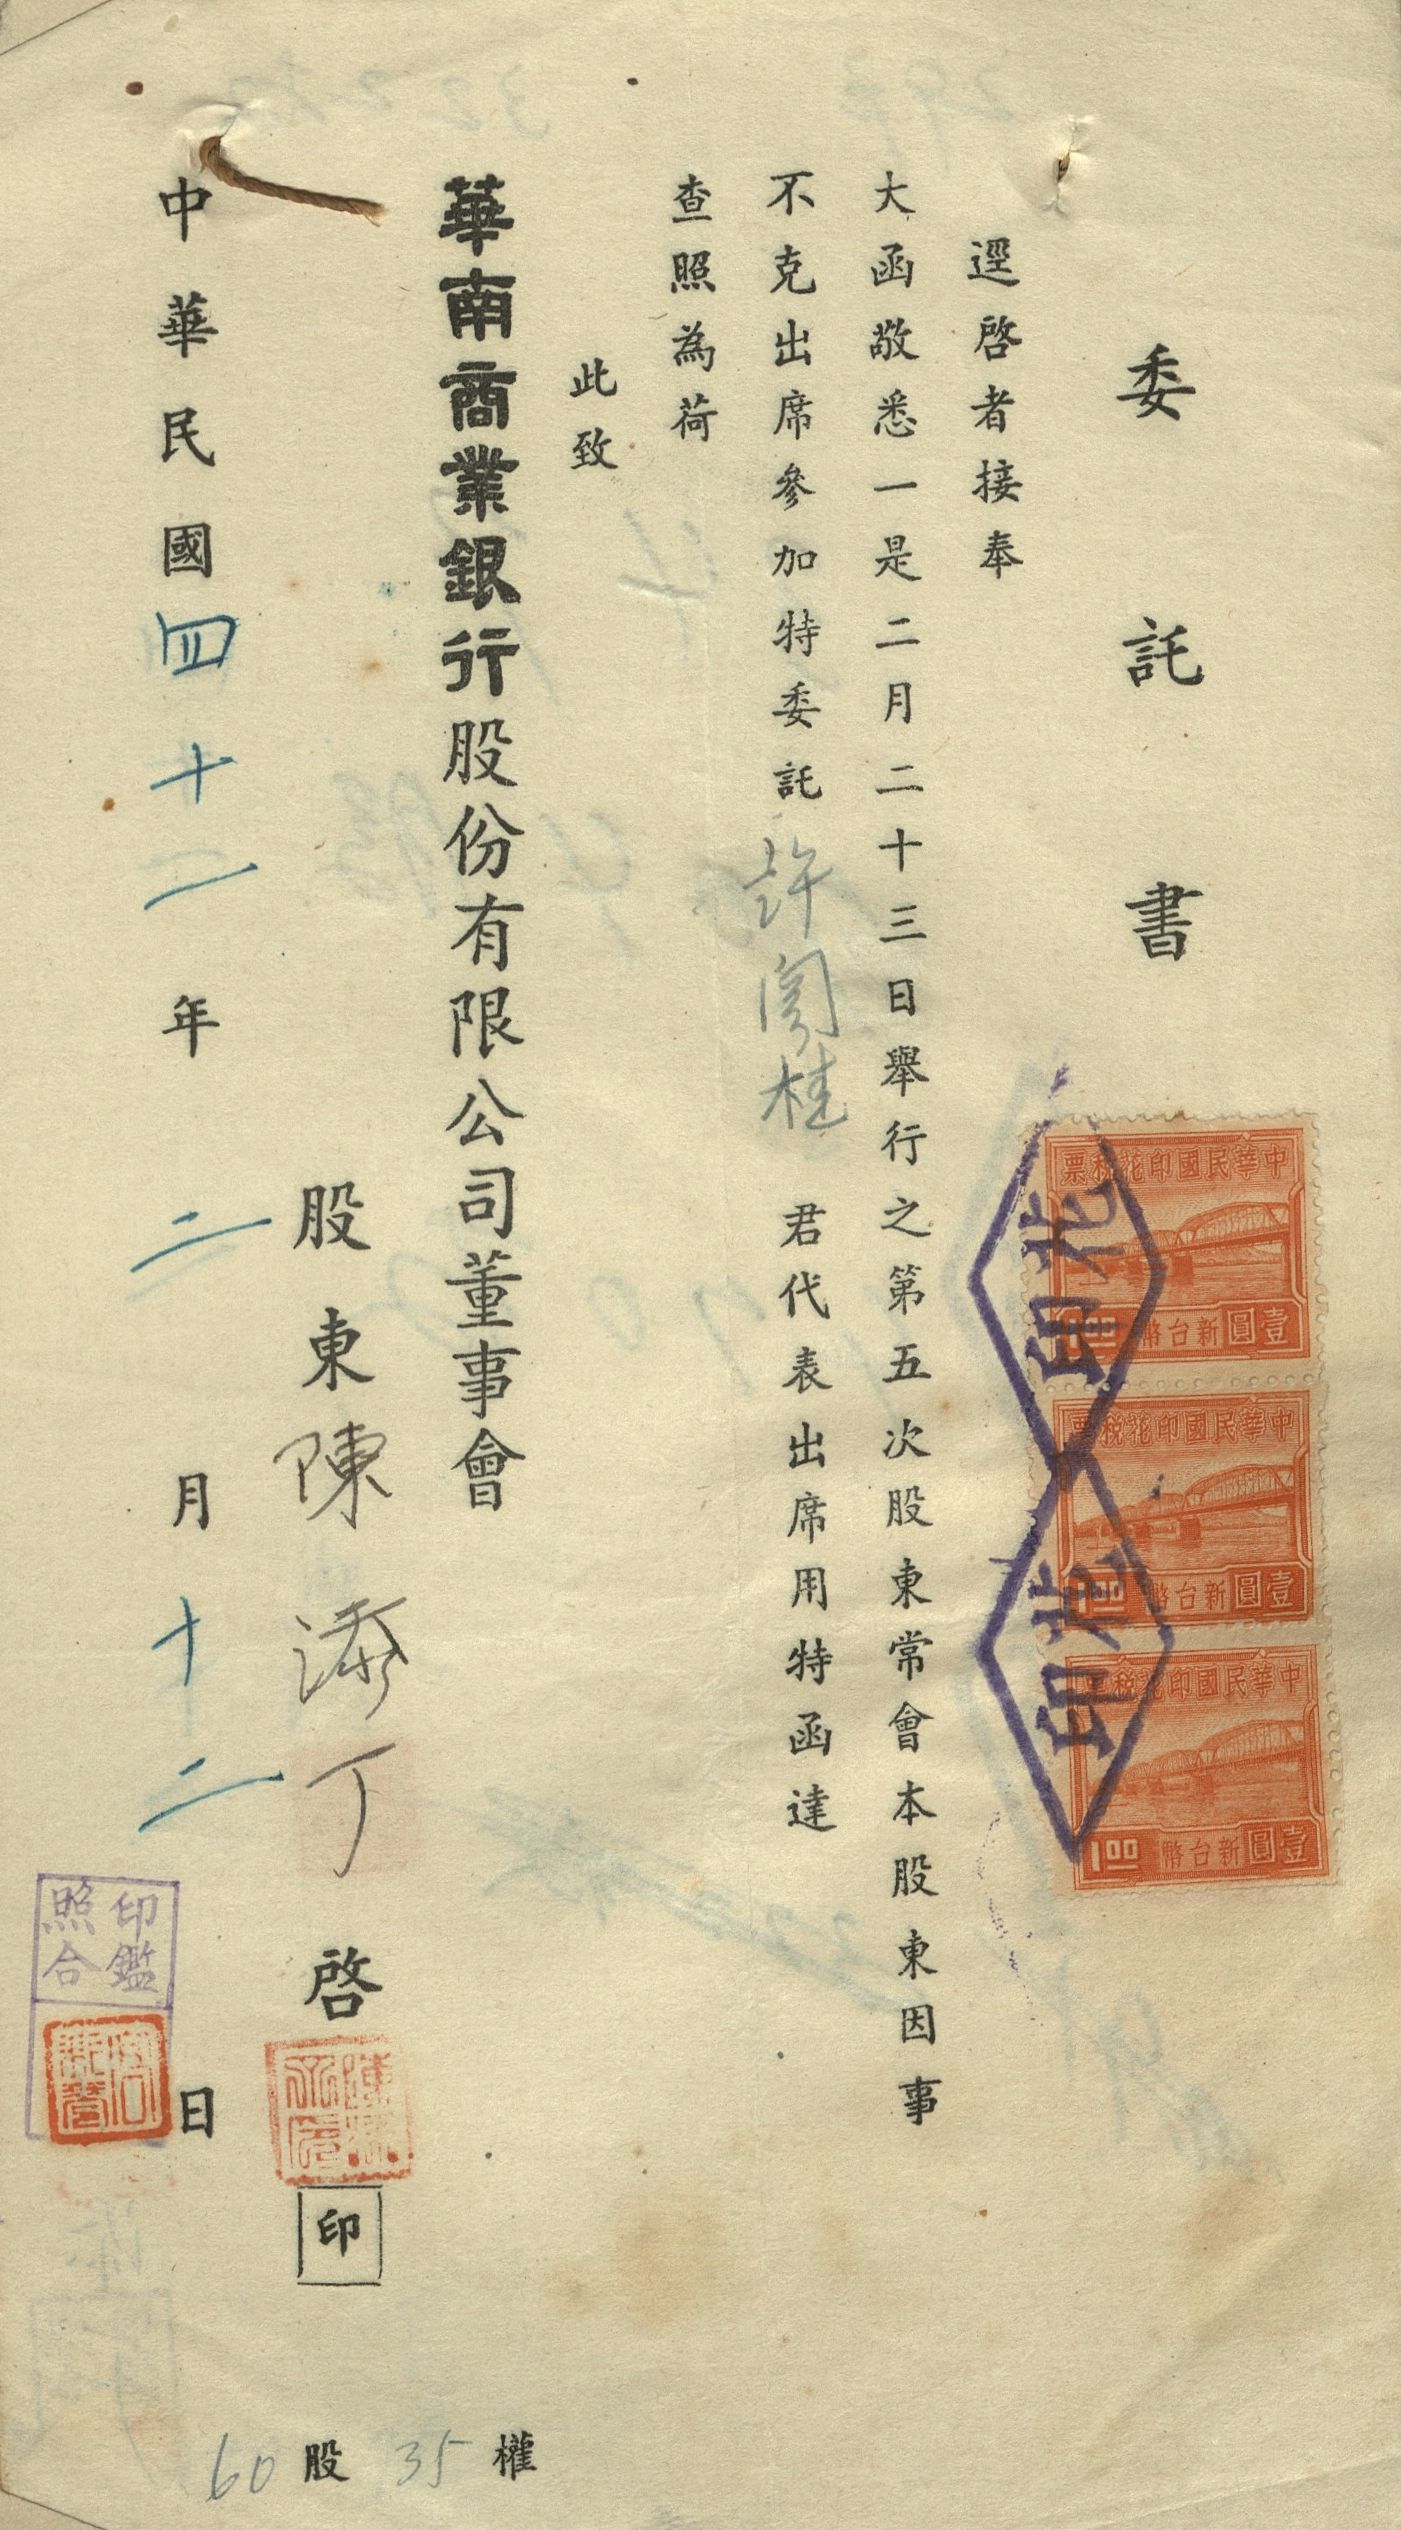 委託書
中華民國印花稅票
壹圓
新台幣
1.00
中華民國印花稅票
壹圓
新台幣
1.00
中華民國印花稅票
壹圓
新台幣
1.00
印花
印花
逕啓者接奉
大函敬悉一是二月二十三日舉行之第五次股東常會本股東因事
不克出席參加特委託許 桂君代表出席用特函達
查照為荷
此致
華南商業銀行股份有限公司董事會
股東陳添丁啓
印
中華民國四十一年二月十二日
印鑑
照合
60股35權